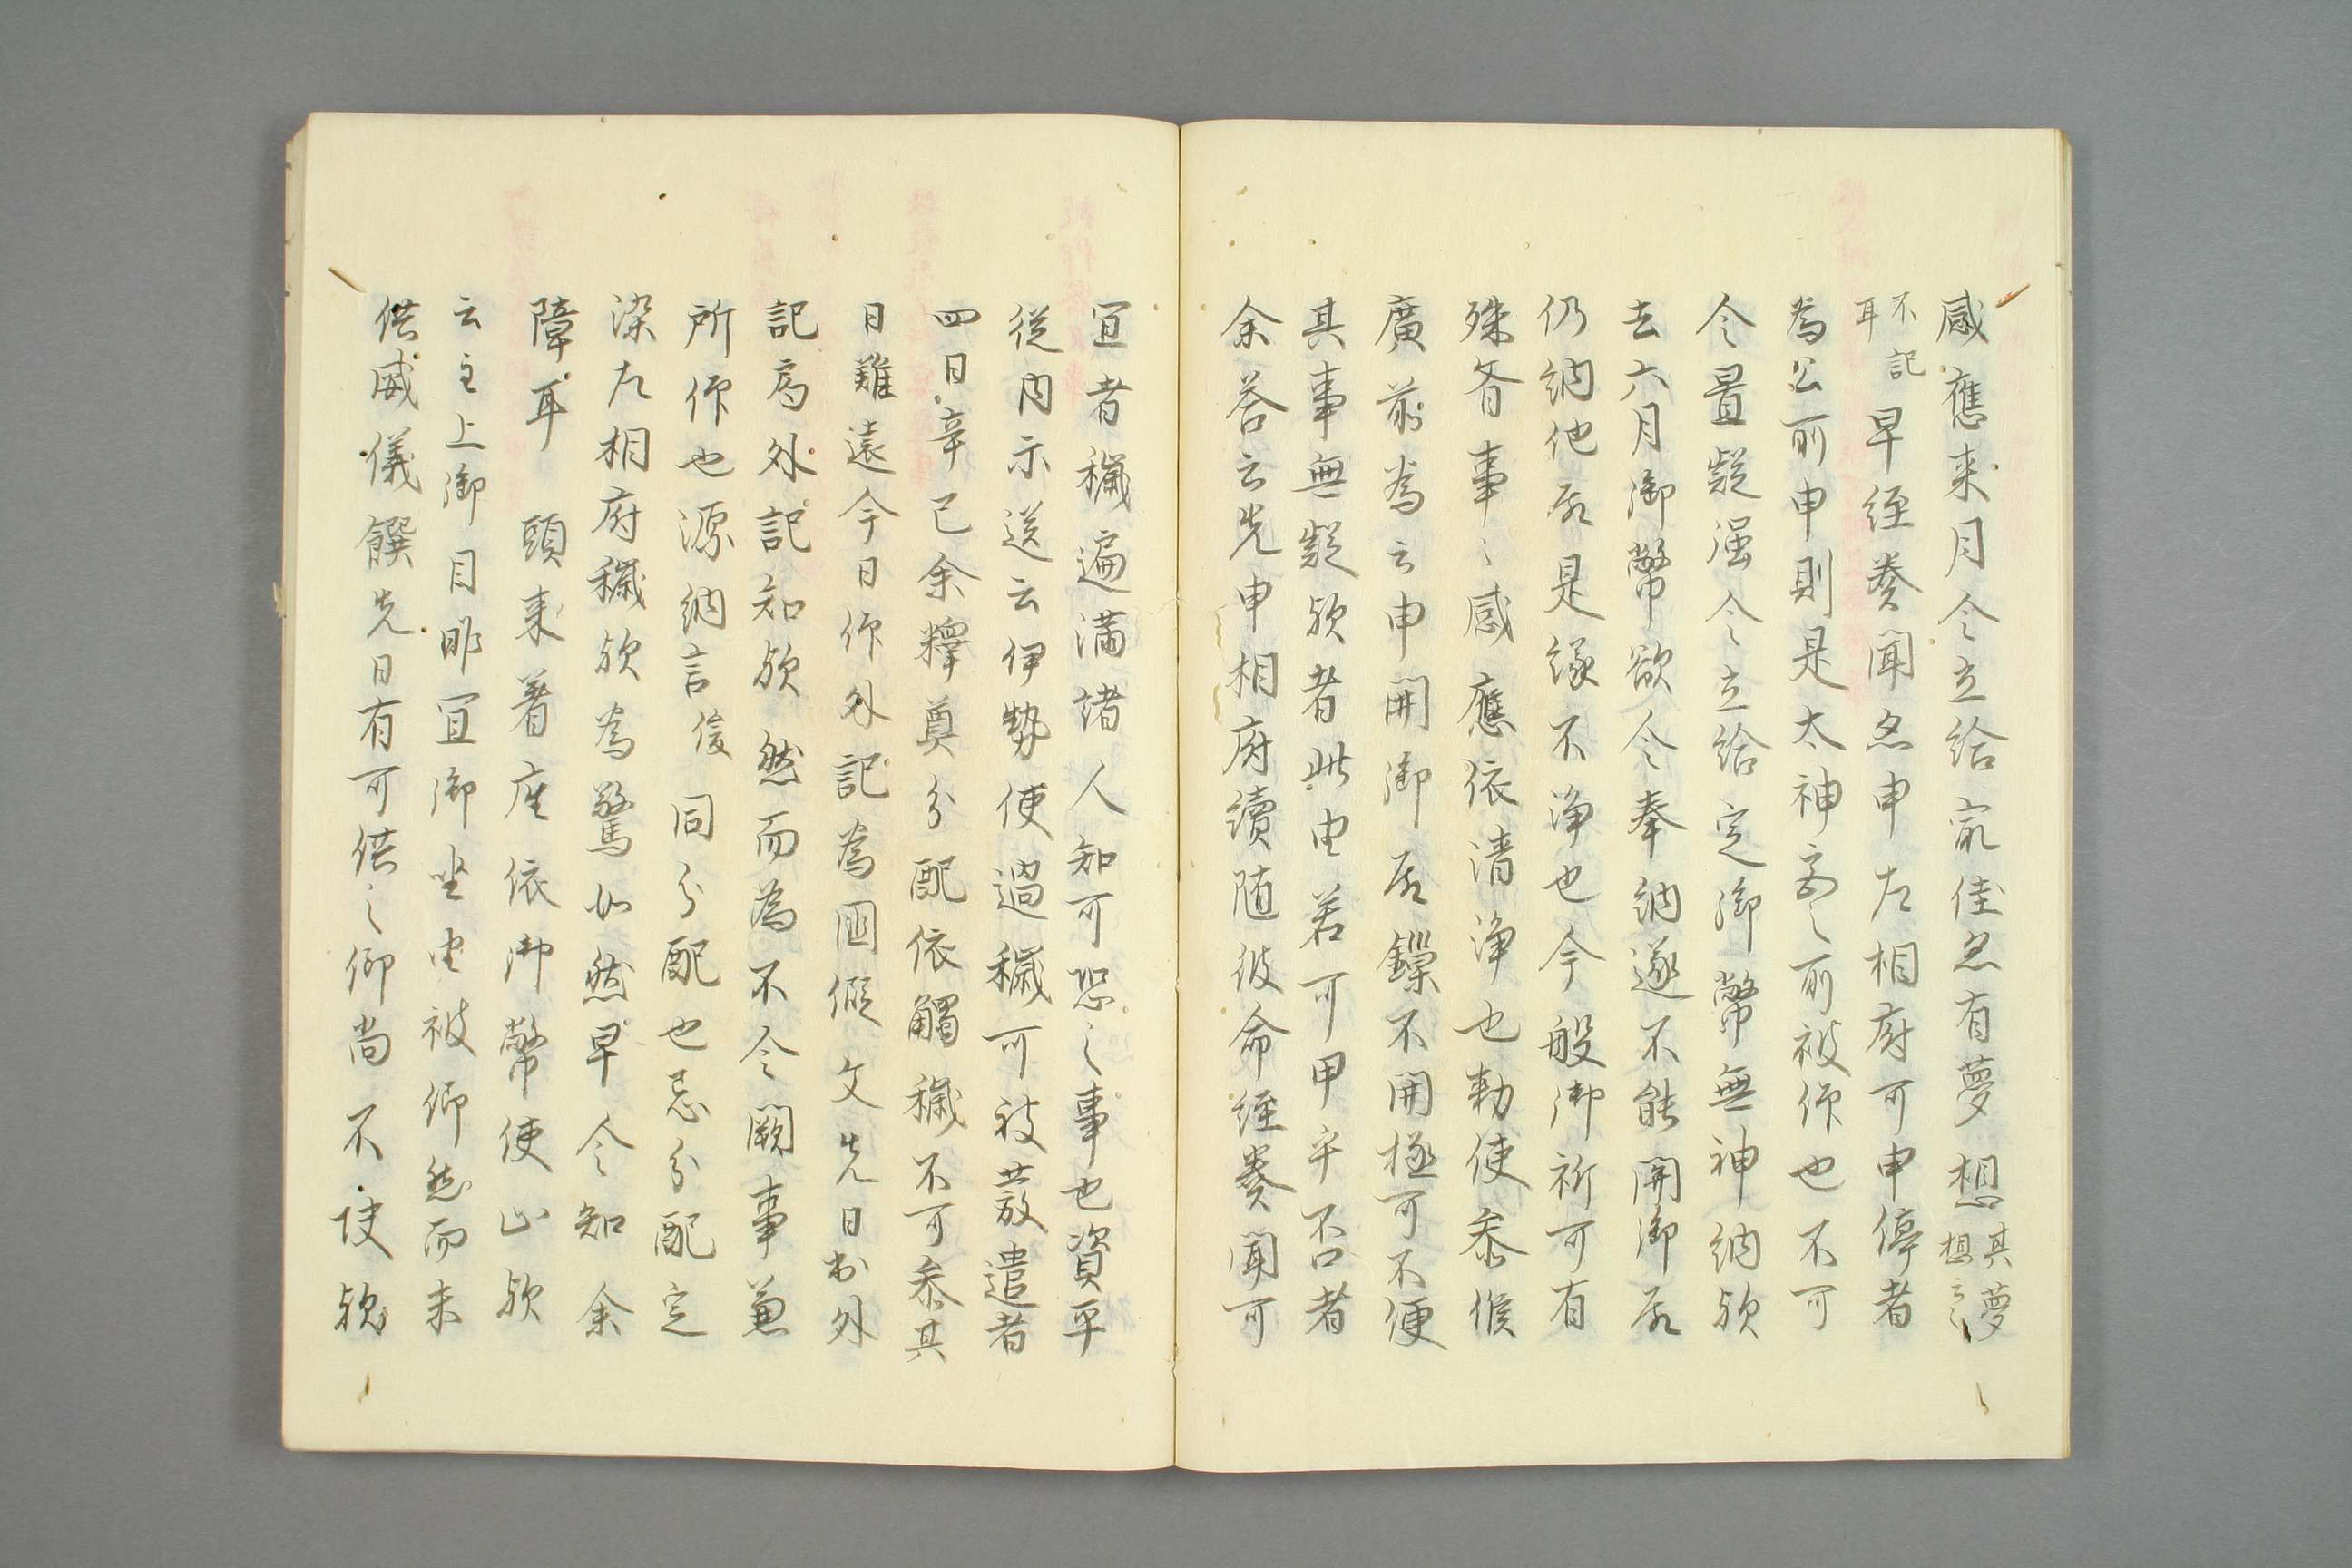 感應来月令立給冣佳忽有夢想其夢想云々
不記耳早経奏聞忽申左相府可申停者
為公所申則是太神宮之所被仰也不可
令置疑强令立給定御幣無神納欤
去六月御幣欲令奉納遂不能開御戸
仍納他所是縁不浄也今般御祈可有
殊吝事々感應依清浄也勅使参候
廣前為云申開御戸鏁不開極可不便
其事無疑欤者此由若可申乎不口者
余荅云先申相府續随彼命経奏聞可
宜者穢遍満諸人知可恐之事也資平
従内示送云伊勢使過穢可被發遣者
四日辛巳余釋奠分配依觸穢不可参其
日雖遠今日仰外記為國假文先日於外
記局外記知欤然而為不令闕事兼
所仰也源納言俊同分配也忌分配定
染左相府穢欤為驚如然早令知余
障耳頭来着座依御幣使止欤
云主上御目昨宜御坐由被仰然而未
供威儀饌先日有可供之仰尚不快欤